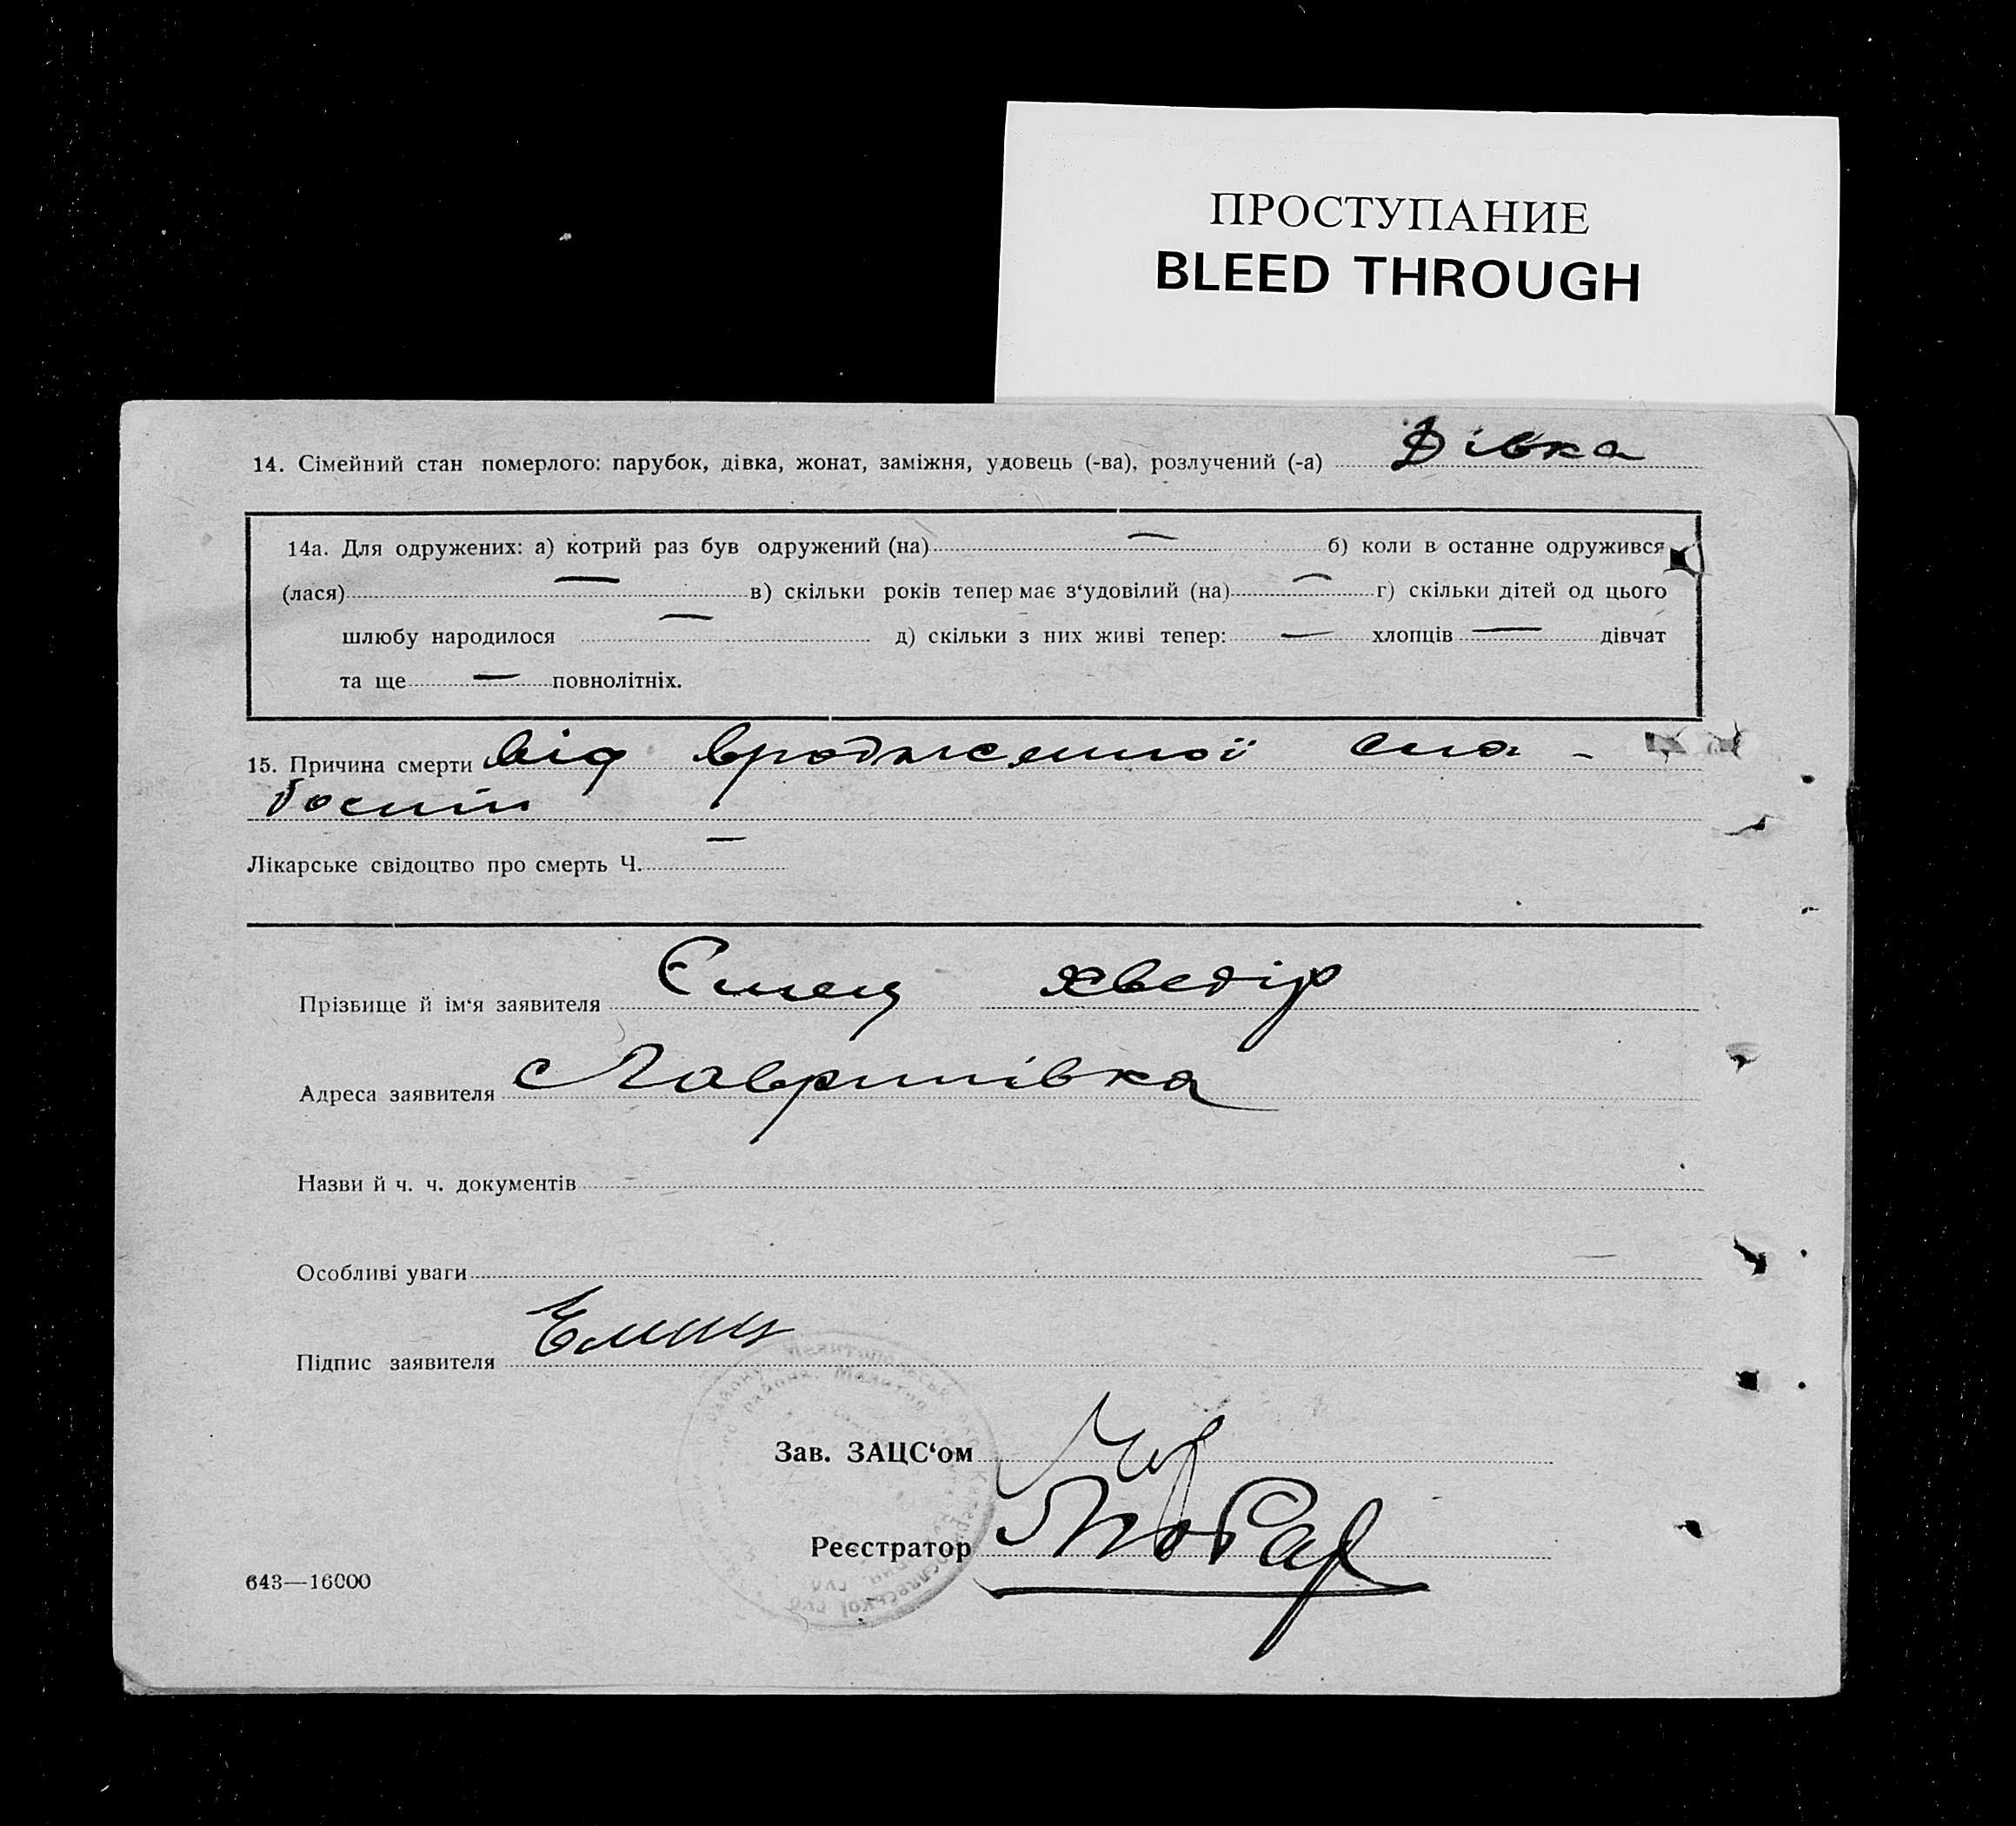 ПРОСТУПАНИЕ
BLEED THROUGH
14. Сімейний стан померлого: парубок, дівка, жонат, заміжня, удовець (-ва), розлучений (-а) Дівка
14а. Для одружених: а) котрий раз був одружений (на) — б) коли в останне одружився
(лася) — в) скільки років тепер має з‘удовілий (на) — г) скільки дітей од цього
шлюбу народилося — д) скільки з них живі тепер: — хлопців — дівчат
та ще — повнолітніх.
15. Причина смерти від вродженної сла-
бости
Лікарське свідоцтво про смерть Ч. —
Прізвище й ім‘я заявителя Ємець Хведір
Адреса заявителя с Лавринівка
Назви й ч. ч. документів
Особливі уваги
Підпис заявителя Емец
Зав. ЗАЦС‘ом
Реєстратор
643—16000